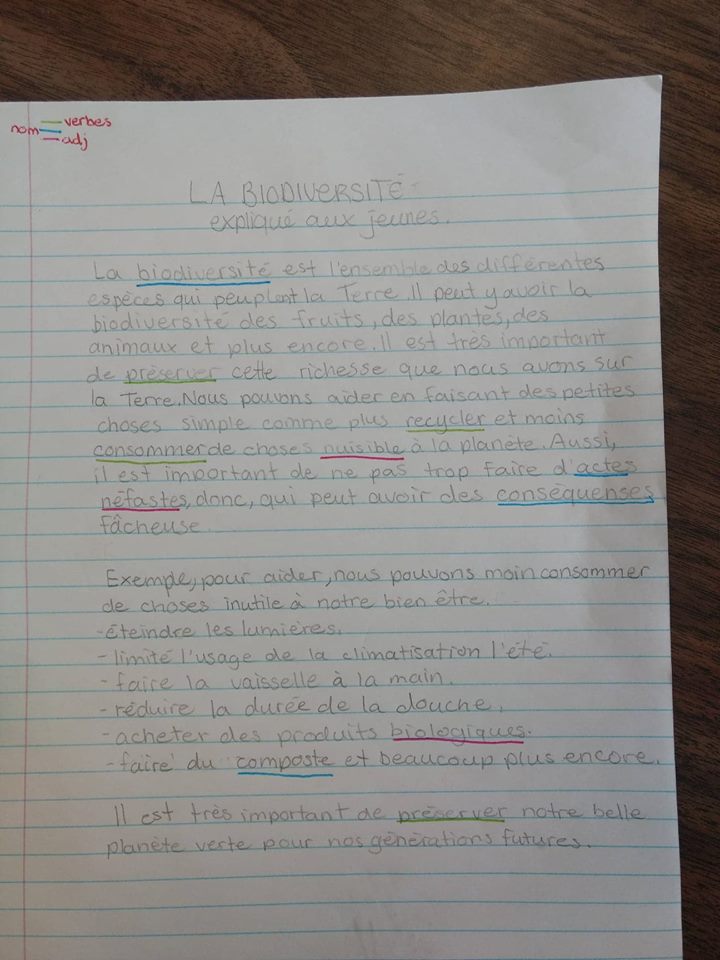 verbes
nom
adj
LA BIODIVERSITÉ
expliqué aux jeunes.
La biodiversité est l'ensemble des différentes
espèces qui peuplent la Terre. Il peut y avoir la
biodiversité des fruits, des plantes, des
animaux et plus encore. Il est très important
de préserver cette richesse que nous avons sur
la Terre. Nous pouvons aider en faisant des petites
choses simple comme plus recycler et moins
consommer de choses nuisible à la planète. Aussi,
il est important de ne pas trop faire d'actes
néfastes, donc, qui peut avoir des conséquenses
fâcheuse.
Exemple, pour aider, nous pouvons moin consommer
de choses inutile à notre bien être.
-éteindre les lumières.
-limité l'usage de la climatisation l'été.
-faire la vaisselle à la main.
-réduire la durée de la douche.
-acheter des produits biologiques.
-faire du composte et beaucoup plus encore.
Il est très important de préserver notre belle
planète verte pour nos générations futures.